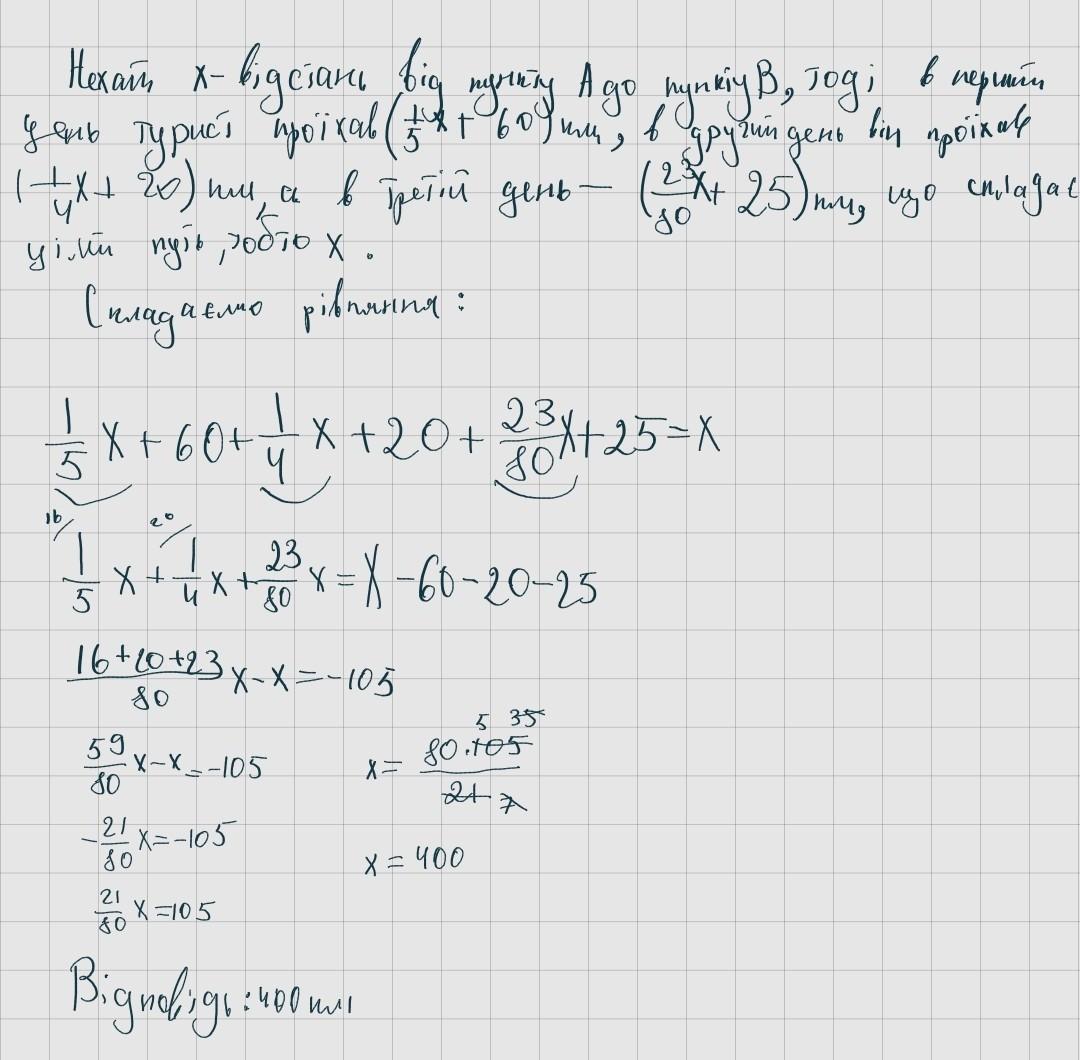 Нехай x- відстань від пункту А до пункту В, тоді в перший
день турист проїхав (1/5 x + 60) км, в другий день він проїхав
(1/4 x + 20) км, а в третій день — (23/80 x + 25) км, що складає
цілий путь, тобто x.
Складаємо рівняння:
1/5 x + 60 + 1/4 x + 20 + 23/80 x + 25 = x
16/ 20/
1/5 x + 1/4 x + 23/80 x = x - 60 - 20 - 25
16+20+23/80 x - x = -105
59/80 x - x = -105
-21/80 x = -105
21/80 x = 105
5 35
x = 80·105/21 7
x = 400
Відповідь: 400 км